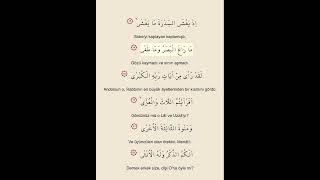 اِذْ يَغْشَى السِّدْرَةَ مَا يَغْشٰىۙ
Sidre'yi kaplayan kaplamıştı.
مَا زَاغَ الْبَصَرُ وَمَا طَغٰى
Gözü kaymadı ve sınırı aşmadı.
لَقَدْ رَاٰى مِنْ اٰيَاتِ رَبِّهِ الْكُبْرٰى
Andolsun o, Rabbinin en büyük ayetlerinden bir kısmını gördü.
اَفَرَاَيْتُمُ اللَّاتَ وَالْعُزّٰىۙ
Gördünüz mü o Lât ve Uzza'yı?
وَمَنٰوةَ الثَّالِثَةَ الْاُخْرٰى
Ve üçüncüleri olan ötekini, Menât'ı.
اَلَكُمُ الذَّكَرُ وَلَهُ الْاُنْثٰى
Demek erkek size, dişi O'na öyle mi?